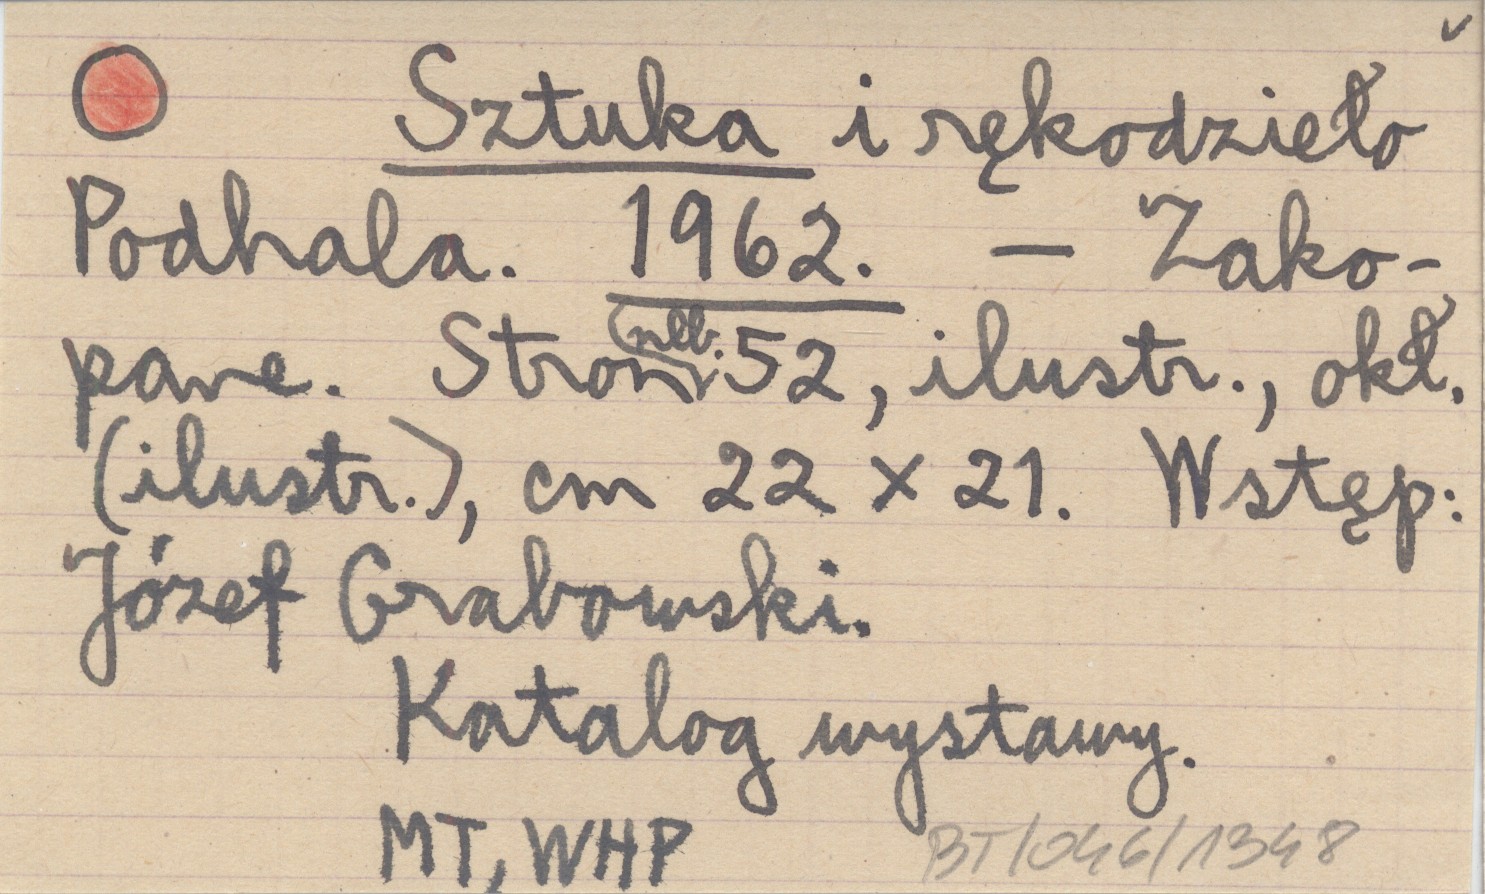 Sztuka i rękodzieło
Podhala. 1962. — Zako-
pane. Stron nlb. 52, ilustr., okł.
(ilustr.), cm 22 x 21. Wstęp:
Józef Grabowski.
Katalog wystawy.
MT, WHP BT/046/1348